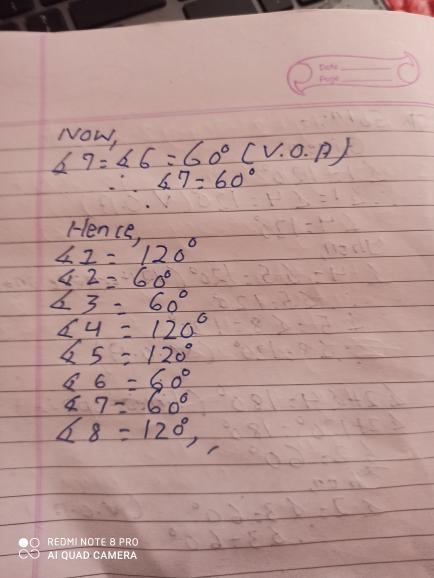 Date
Page
Now,
∡7=∡6=60° (V.O.A)
∴ ∡7=60°
Hence,
∡1= 120°
∡2=60°
∡3= 60°
∡4= 120°
∡5=120°
∡6=60°
∡7=60°
∡8=120°,,
REDMI NOTE 8 PRO
AI QUAD CAMERA